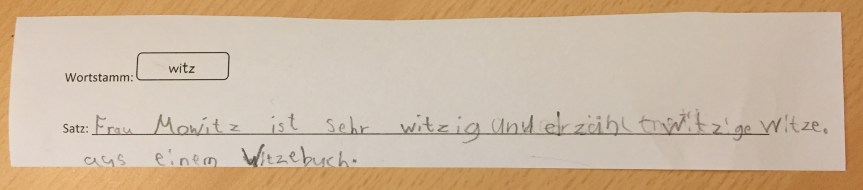 Wortstamm: witz
Satz: Frau Mowitz ist sehr witzig und erzählt witzige Witze.
aus einem Witzebuch.